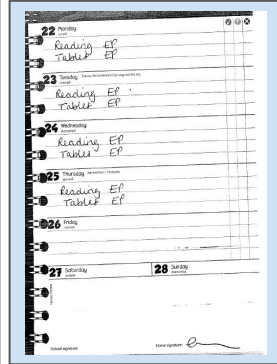 22 Monday
Reading EP
Tables EP
23 Tuesday
Reading EP
Tables EP
24 Wednesday
Reading EP
Tables EP
25 Thursday
Reading EP
Tables EP
26 Friday
27 Saturday
28 Sunday
School signature
Home signature